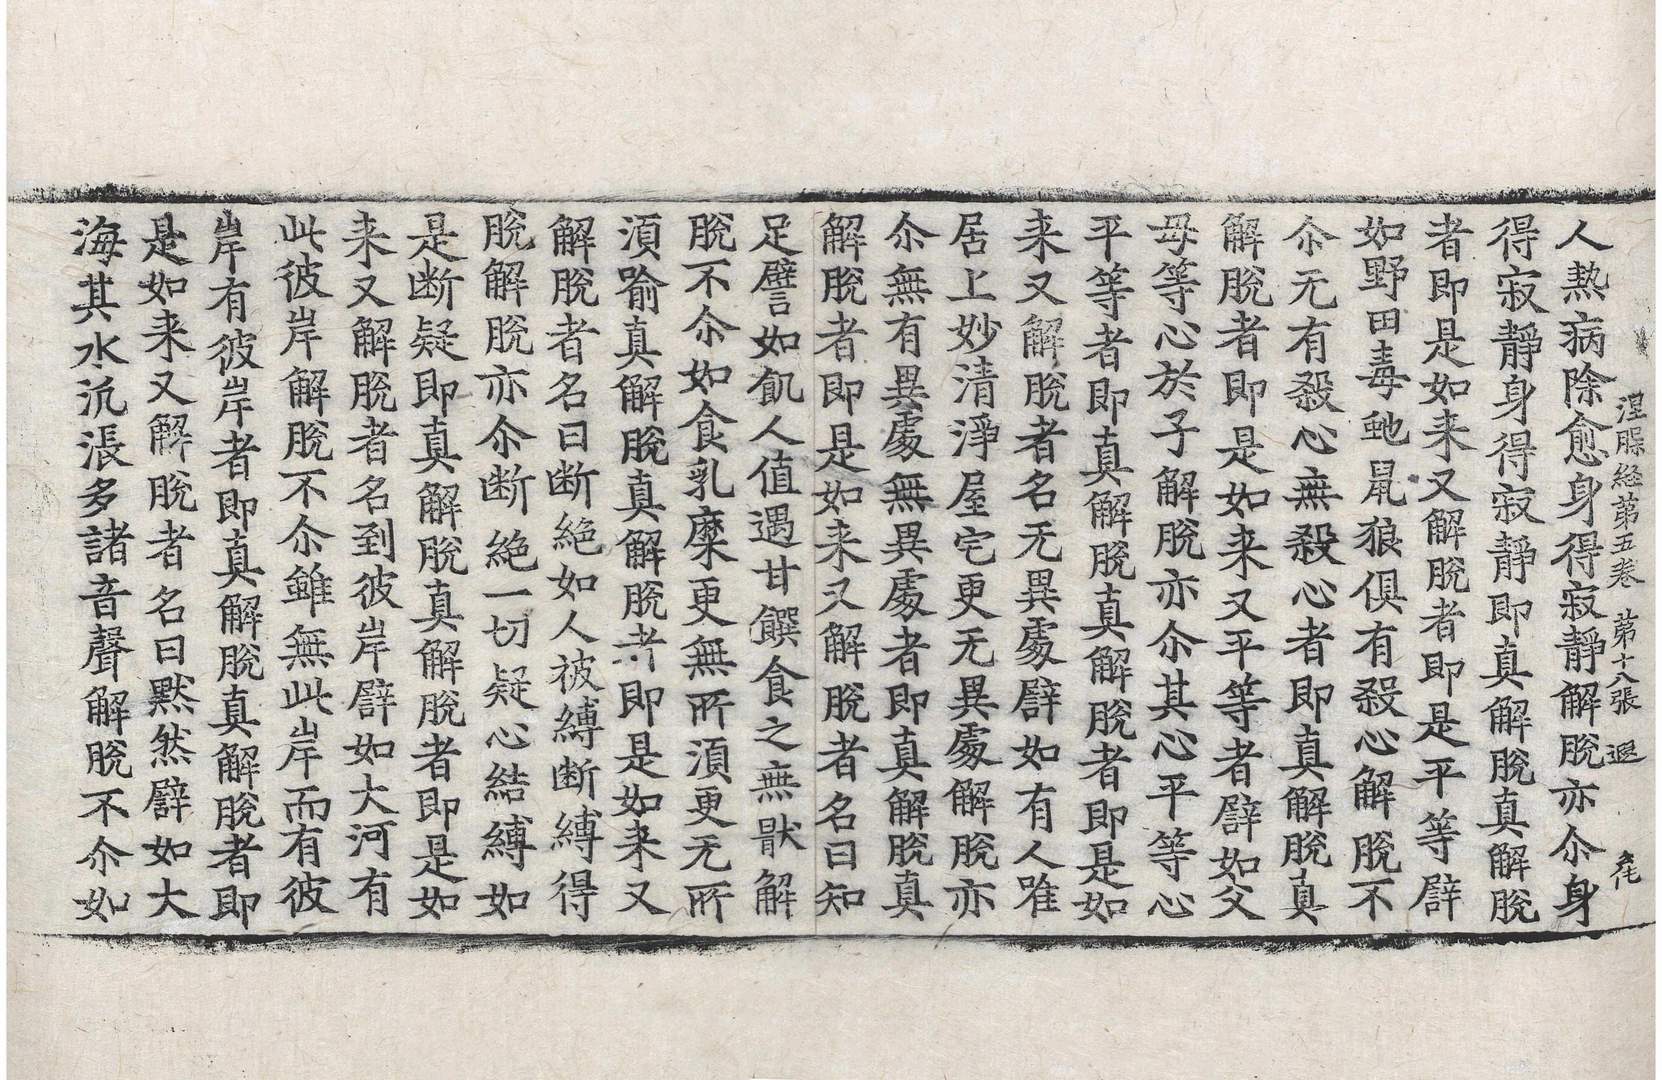 涅槃経第五卷 第十八張 遐
人熱病除愈身得寂靜解脫亦尒身
得寂靜身得寂靜即真解脫真解脫
者即是如来又解脫者即是平等譬
如野田毒虵鼠狼俱有殺心解脫不
尒无有殺心無殺心者即真解脫真
解脫者即是如来又平等者譬如父
母等心於子解脫亦尒其心平等心
平等者即真解脫真解脫者即是如
来又解脫者名无異處譬如有人唯
居上妙清淨屋宅更无異處解脫亦
尒無有異處無異處者即真解脫真
解脫者即是如来又解脫者名曰知
足譬如飢人值遇甘饌食之無猒解
脫不尒如食乳糜更無所湏更无所
湏喻真解脫真解脫者即是如来又
解脫者名曰断絶如人被縛断縛得
脫解脫亦尒断絶一切疑心結縛如
是断疑即真解脫真解脫者即是如
来又解脫者名到彼岸譬如大河有
此彼岸解脫不尒雖無此岸而有彼
岸有彼岸者即真解脫真解脫者即
是如来又解脫者名曰默然譬如大
海其水汎漲多諸音聲解脫不尒如